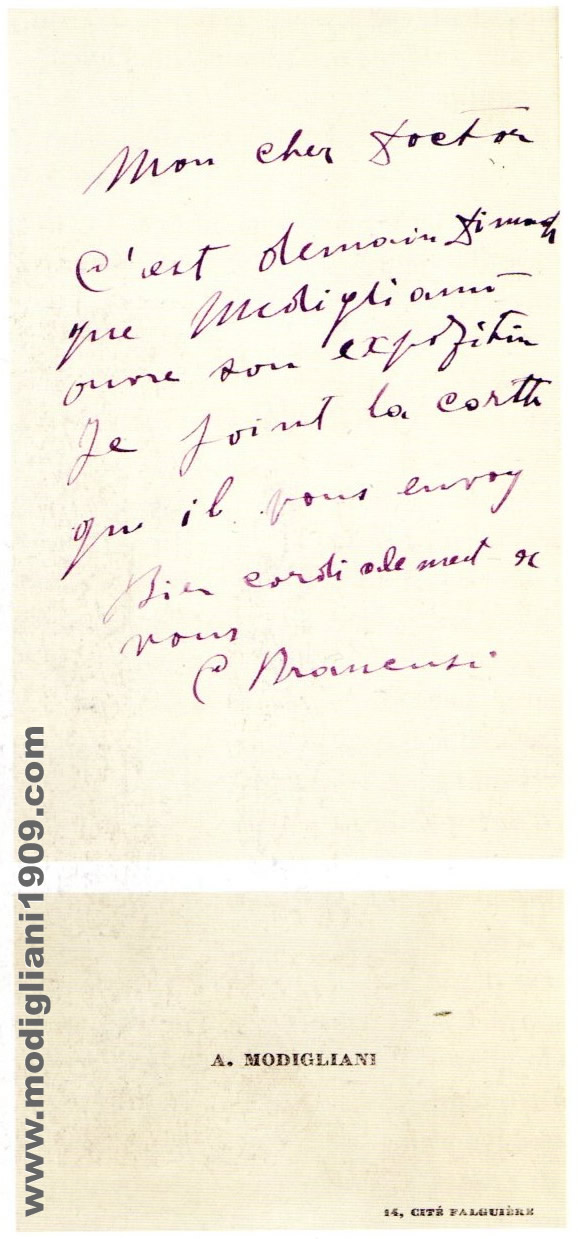 Mon cher Doctor
C'est demain
que Modigliani
ouvre son expozition
Je joint la carth
que il vous envoy
Bien cordialement a
vous
C Brancusi
www.modigliani1909.com
A. MODIGLIANI
14, CITÉ FALGUIÈRE